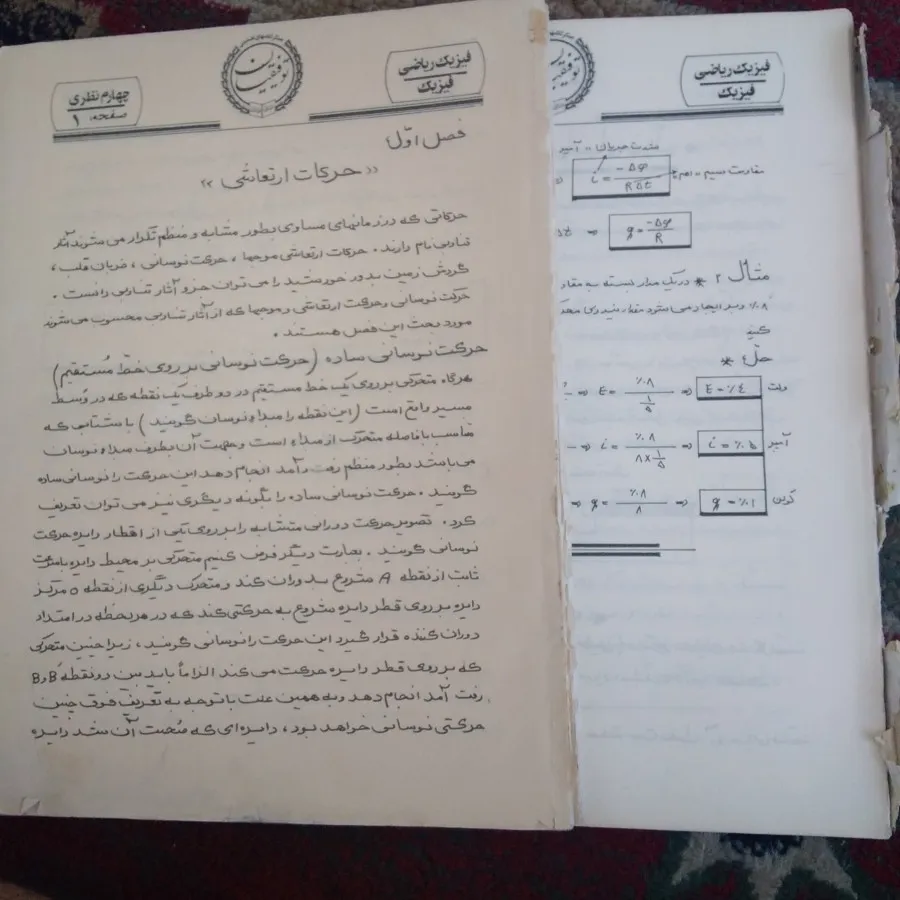 فیزیک ریاضی
فیزیک
توفیقیان
چهارم نظری
صفحه: ۱
فصل اوّل:
«حرکات ارتعاشی»
حرکاتی که در زمانهای مساوی بطور مشابه و منظم تکرار می شوند آثار
تناوبی نام دارند. حرکات ارتعاشی موجها، حرکت نوسانی، ضربان قلب،
گردش زمین بدور خورشید را می توان جزو آثار تناوبی دانست.
حرکت نوسانی و حرکت ارتعاشی و موجها که از آثار تناوبی محسوب می شوند
مورد بحث این فصل هستند.
حرکت نوسانی ساده (حرکت نوسانی بر روی خط مُستقیم)
هرگاه متحرکی بر روی یک خط مستقیم در دو طرف یک نقطه که در وسط
مسیر واقع است (این نقطه را مبداء نوسان گویند) با شتابی که
متناسب با فاصله متحرک از مبداء است و جهت آن بطرف مبداء نوسان
می باشد بطور منظم رفت و آمد انجام دهد این حرکت را نوسانی ساده
گویند. حرکت نوسانی ساده را بگونه دیگری نیز می توان تعریف
کرد. تصویر حرکت دورانی متشابه را بر روی یکی از اقطار دایره حرکت
نوسانی گویند. بعبارت دیگر فرض کنیم متحرکی بر محیط دایره با سرعت
ثابت از نقطه A شروع بدوران کند و متحرک دیگری از نقطه o مرکز
دایره بر روی قطر دایره شروع به حرکتی کند که در هر لحظه در امتداد
دوران کننده قرار گیرد این حرکت را نوسانی گویند، زیرا چنین متحرکی
که بر روی قطر دایره حرکت می کند الزاماً باید بین دو نقطه B و B'
رفت آمد انجام دهد و به همین علت با توجه به تعریف فوق چنین
حرکتی نوسانی خواهد بود، دایره ای که صُحبت آن شد دایره
فیزیک ریاضی
فیزیک
توفیقیان
شدت جریان القا = آمپر
مقاومت سیم = اهم i = -Δφ / RΔt
Δt ⇒ q = -Δφ / R
مثال ۲ * در یک مدار بسته به مقاو
۰/۸ وبر ایجاد می شود مقدار نیروی محر
کنید
حل: *
⇒ E = ٪۸ / ۱/۵ ⇒ E = ٪٤ ولت
⇒ i = ٪۸ / ۸×۱/۵ ⇒ i = ٪۵ آمپر
⇒ q = ٪۸ / ۸ ⇒ q = ٪۱ کولن